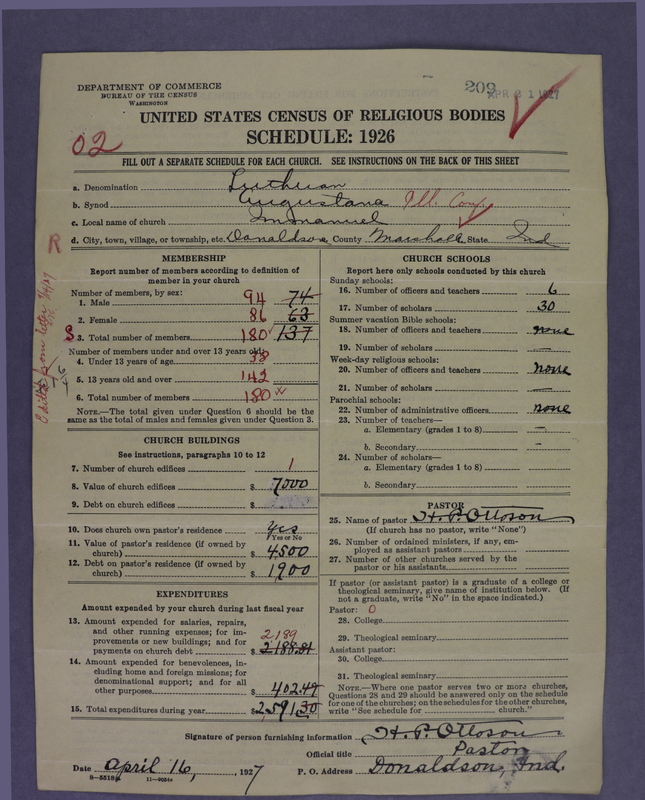 DEPARTMENT OF COMMERCE
BUREAU OF THE CENSUS
WASHINGTON
209
APR 21 1927
UNITED STATES CENSUS OF RELIGIOUS BODIES
SCHEDULE: 1926
02
FILL OUT A SEPARATE SCHEDULE FOR EACH CHURCH. SEE INSTRUCTIONS ON THE BACK OF THIS SHEET
a. Denomination Lutheran
b. Synod Augustana Ill. Con.
c. Local name of church Immanuel
d. City, town, village, or township, etc. Donaldson, County Marshall State Ind
R
MEMBERSHIP
Report number of members according to definition of
member in your church
Number of members, by sex:
1. Male 94 74
2. Female 86 63
S 3. Total number of members 180 137
Number of members under and over 13 years old:
4. Under 13 years of age 38
5. 13 years old and over 142
6. Total number of members 180
NOTE.—The total given under Question 6 should be
same as the total of males and females given under Question 3.
CHURCH BUILDINGS
See instructions, paragraphs 10 to 12
7. Number of church edifices 1
8. Value of church edifices $ 7000
9. Debt on church edifices $
10. Does church own pastor's residence Yes
Yes or No
11. Value of pastor's residence (if owned by
church) $ 4500
12. Debt on pastor's residence (if owned by
church) $ 1900
EXPENDITURES
Amount expended by your church during last fiscal year
13. Amount expended for salaries, repairs,
and other running expenses; for im-
provements or new buildings; and for
payments on church debt $ 2189 2188.81
14. Amount expended for benevolences, in-
cluding home and foreign missions; for
denominational support; and for all
other purposes $ 402.49
15. Total expenditures during year $ 2,591.30
CHURCH SCHOOLS
Report here only schools conducted by this church
Sunday schools:
16. Number of officers and teachers 6
17. Number of scholars 30
Summer vacation Bible schools:
18. Number of officers and teachers none
19. Number of scholars —
Week-day religious schools:
20. Number of officers and teachers none
21. Number of scholars —
Parochial schools:
22. Number of administrative officers none
23. Number of teachers—
a. Elementary (grades 1 to 8) —
b. Secondary —
24. Number of scholars—
a. Elementary (grades 1 to 8)
b. Secondary
PASTOR
25. Name of pastor H. P. Ottoson
(If church has no pastor, write "None")
26. Number of ordained ministers, if any, em-
ployed as assistant pastors
27. Number of other churches served by the
pastor or his assistants
If pastor (or assistant pastor) is a graduate of a college or
theological seminary, give name of institution below. (If
not a graduate, write "No" in the space indicated.)
Pastor: 0
28. College
29. Theological seminary
Assistant pastor:
30. College
31. Theological seminary
NOTE.—Where one pastor serves two or more churches,
Questions 28 and 29 should be answered only on the schedule
for one of the churches; on the schedules for the other churches,
write "See schedule for church."
Signature of person furnishing information H. P. Ottoson
Official title Pastor
Date April 16, 1927 P. O. Address Donaldson, Ind.